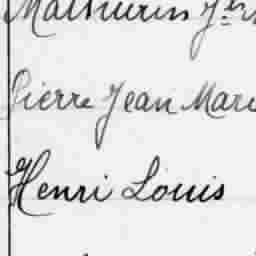 Mathurin
Pierre Jean Mari
Henri Louis